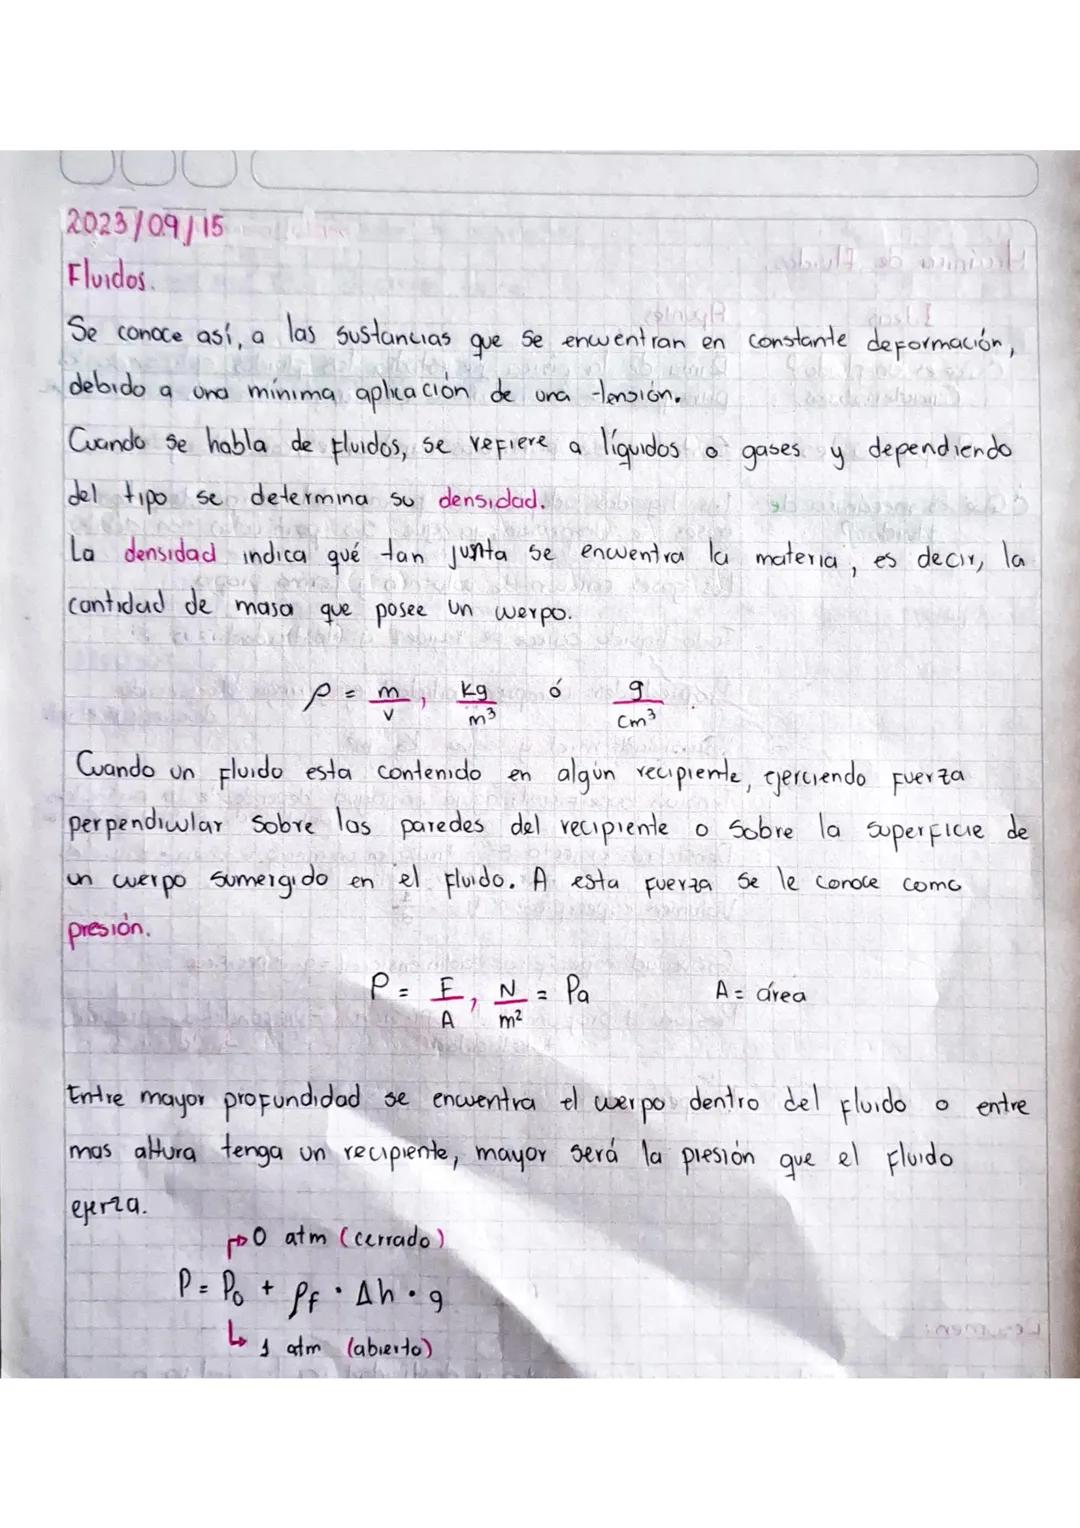 2023/09/15
Fluidos.
Se conoce así, a las sustancias que se encuentran en constante deformación,
debido a una mínima aplicación de una tensión.
Cuando se habla de fluidos, se refiere a líquidos o gases y dependiendo
del tipo se determina su densidad.
La densidad indica qué tan junta se encuentra la materia, es decir, la
cantidad de masa que posee un cuerpo.
ρ = m/v, kg/m³ ó g/cm³.
Cuando un fluido esta contenido en algún recipiente, ejerciendo fuerza
perpendicular sobre las paredes del recipiente o sobre la superficie de
un cuerpo sumergido en el fluido. A esta fuerza se le conoce como
presión.
P = F/A, N/m² = Pa A = área
Entre mayor profundidad se encuentra el cuerpo dentro del fluido o entre
mas altura tenga un recipiente, mayor será la presión que el fluido
ejerza.
↱ 0 atm (cerrado)
P = P₀ + ρf · Δh · g
↳ 1 atm (abierto)